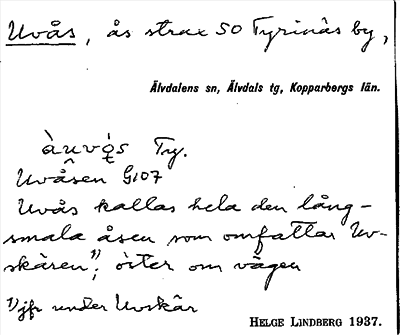 Uvås, ås strax SO Tyrinäs by,
Älvdalens sn, Älvdals tg, Kopparbergs län.
Ty.
Uvåsen G107
Uvås kallas hela den lång-
smala åsen som omfattar Uv-
skären¹⁾, öster om vägen
¹⁾ jfr under Uvskär
HELGE LINDBERG 1937.